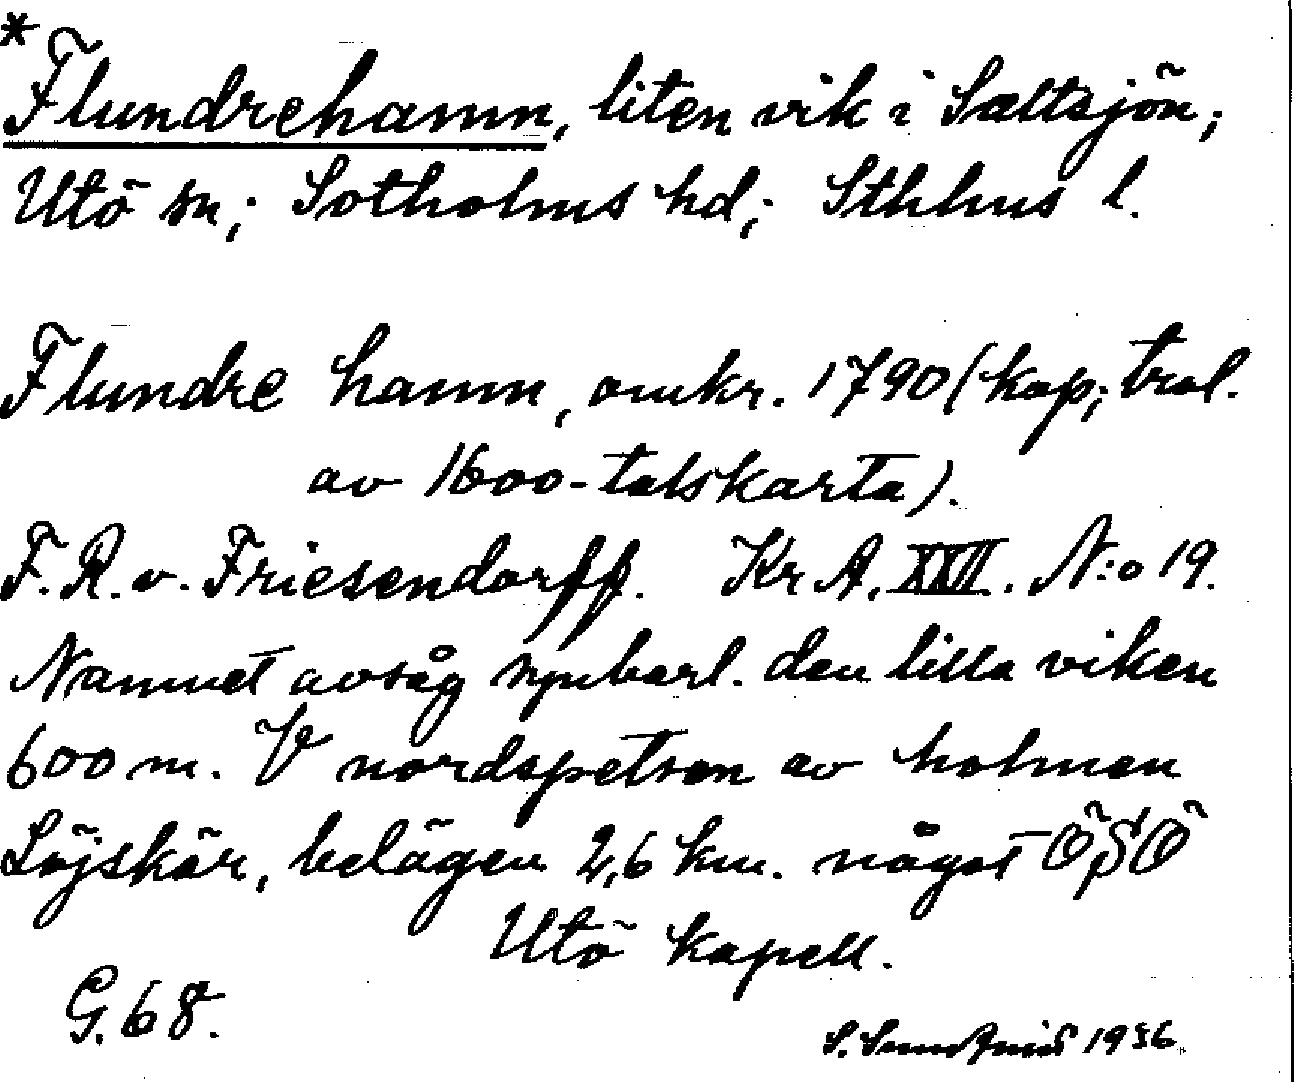 *Flundrehamn, liten vik i Saltsjön;
Utö sn; Sotholms hd; Sthlms l.
Flundre hamn, omkr. 1790 (kop; trol.
av 1600-talskarta).
F. R. v. Friesendorff. Kr A. XXII. N:o 19.
Namnet avsåg synbarl. den lilla viken
600 m. V nordspetsen av holmen
Löjskär, belägen 2,6 km. något ÖSÖ
Utö kapell.
G. 68.
S. 1936